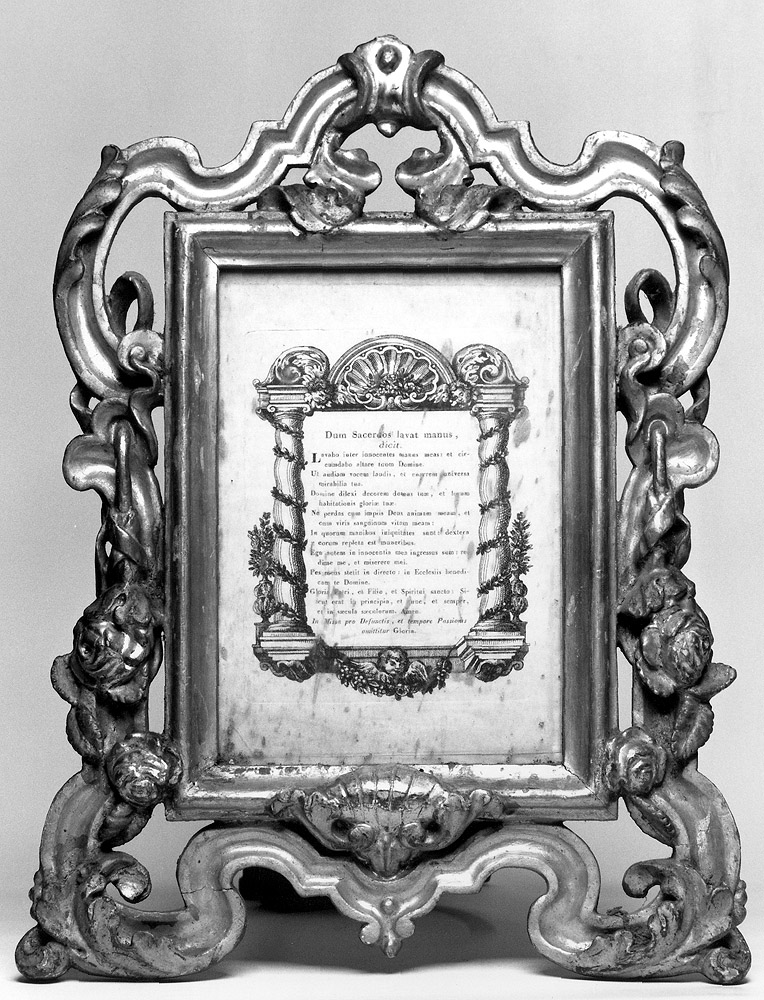 Dum Sacerdos lavat manus,
dicit.
Lavabo inter innocentes manus meas: et cir-
cumdabo altare tuum Domine.
Ut audiam vocem laudis, et enarrem universa
mirabilia tua.
Domine dilexi decorem domus tuæ, et locum
habitationis gloriæ tuæ.
Ne perdas cum impiis Deus animam meam, et
cum viris sanguinum vitam meam:
In quorum manibus iniquitates sunt: dextera
eorum repleta est muneribus.
Ego autem in innocentia mea ingressus sum: re-
dime me, et miserere mei.
Pes meus stetit in directo: in Ecclesiis benedi-
cam te Domine.
Gloria Patri, et Filio, et Spiritui sancto: Si-
cut erat in principio, et nunc, et semper,
et in sæcula sæculorum. Amen.
In Missa pro Defunctis, et tempore Passionis
omittitur Gloria.